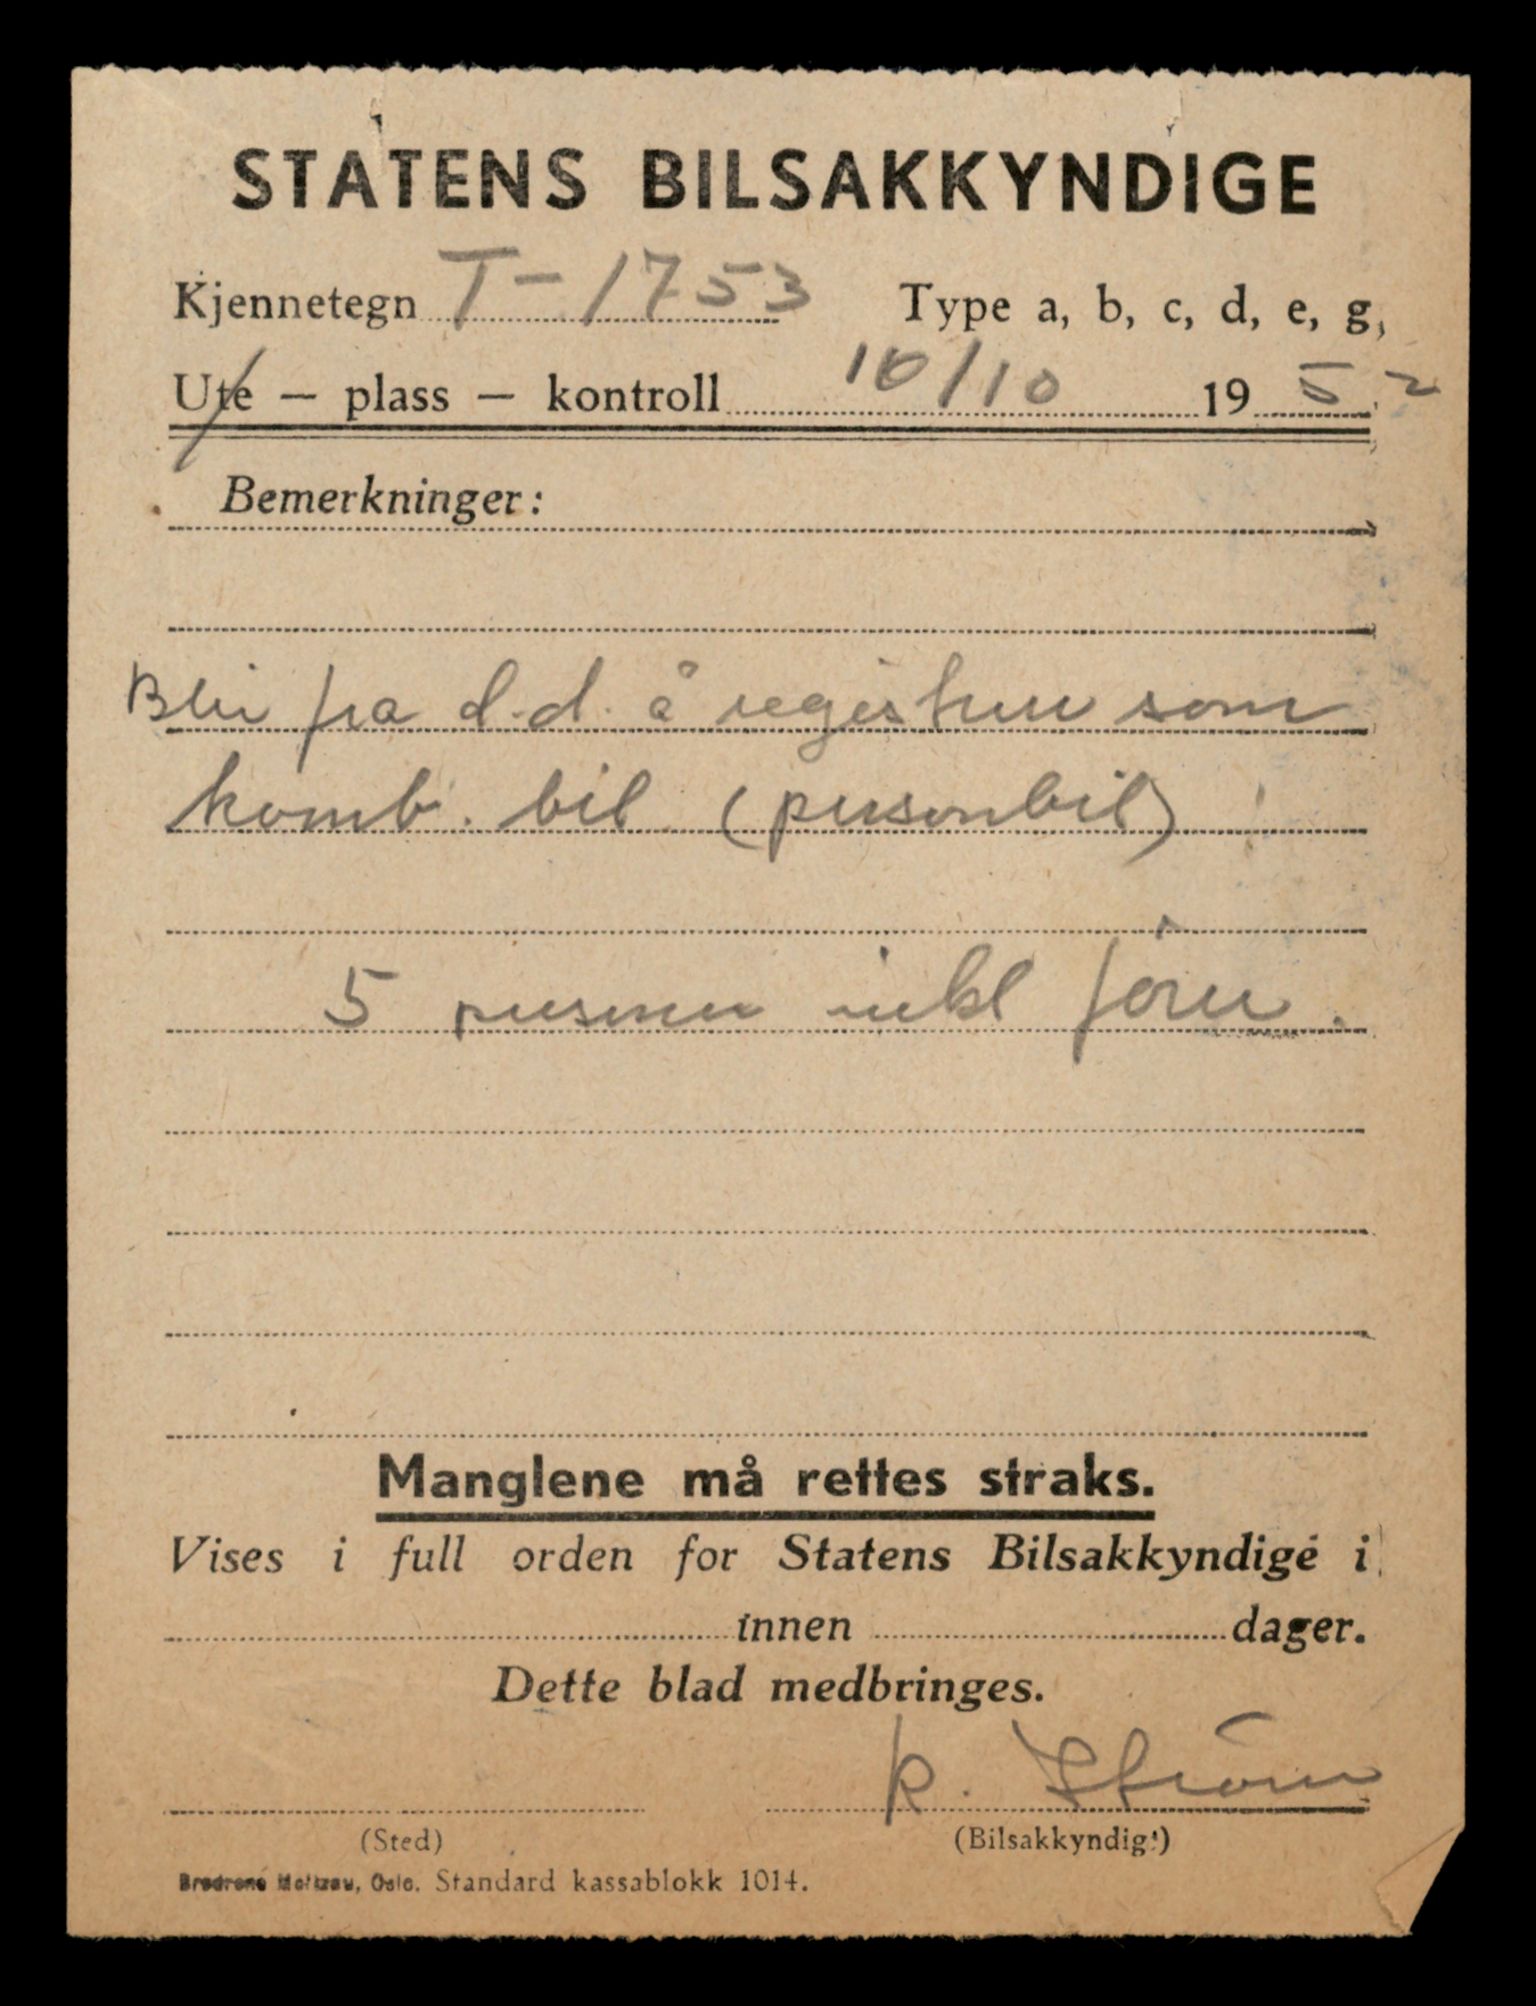 STATENS BILSAKKYNDIGE
Kjennetegn T-1753 Type a, b, c, d, e, g,
Ute — plass — kontroll 10/10 1952
Bemerkninger:
Blir fra d.d. å registrere som
komb. bil (personbil)
5 personer inkl fører.
Manglene må rettes straks.
Vises i full orden for Statens Bilsakkyndige i
innen dager.
Dette blad medbringes.
K. Strøm
(Sted) (Bilsakkyndig)
Brødrene Moltzau, Oslo. Standard kassablokk 1014.